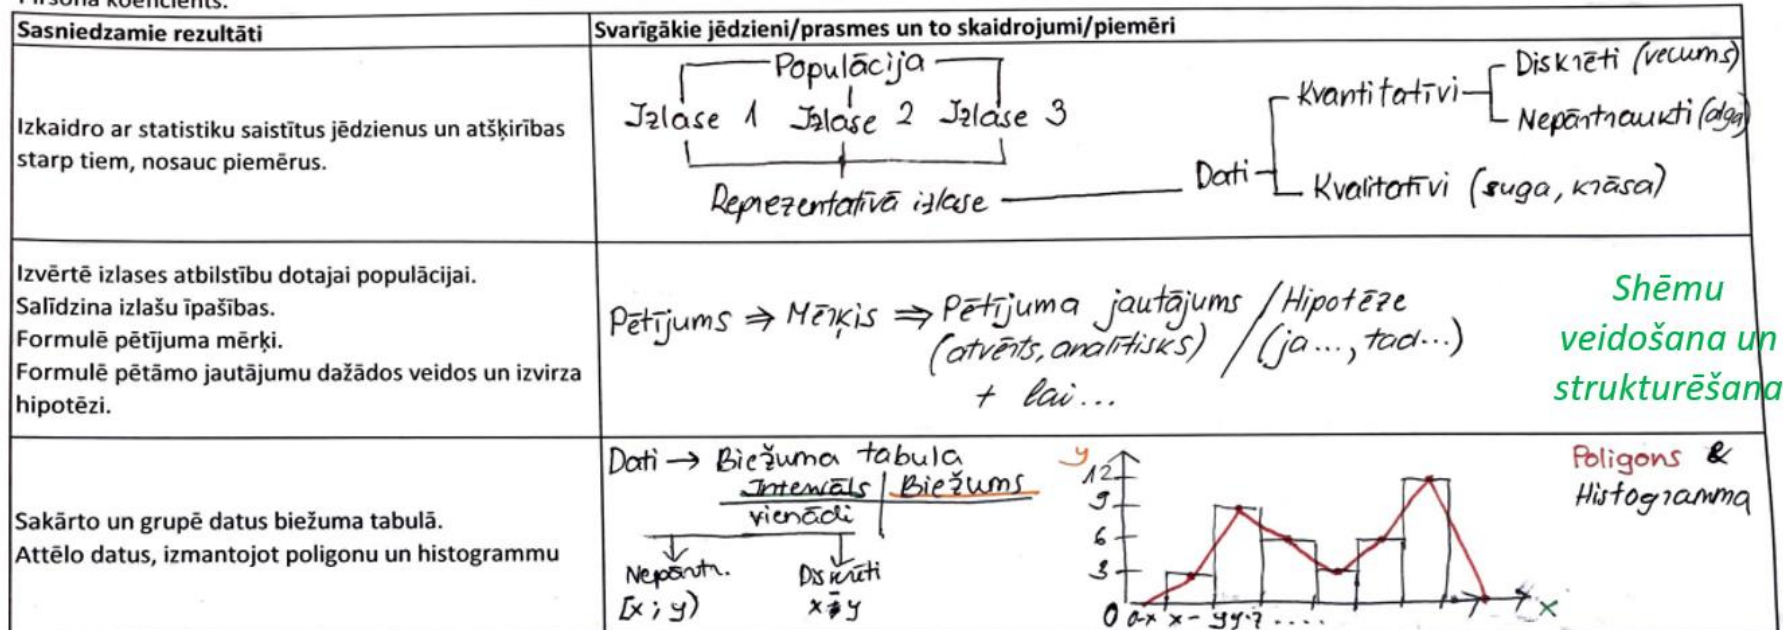 Pirsona koeficients.
Sasniedzamie rezultāti
Svarīgākie jēdzieni/prasmes un to skaidrojumi/piemēri
Izkaidro ar statistiku saistītus jēdzienus un atšķirības
starp tiem, nosauc piemērus.
Populācija
Izlase 1 Izlase 2 Izlase 3
Reprezentatīvā izlase
Dati
Kvantitatīvi
Diskrēti (vecums)
Nepārtraukti (alga)
Kvalitatīvi (suga, krāsa)
Izvērtē izlases atbilstību dotajai populācijai.
Salīdzina izlašu īpašības.
Formulē pētījuma mērķi.
Formulē pētāmo jautājumu dažādos veidos un izvirza
hipotēzi.
Pētījums ⇒ Mērķis ⇒ Pētījuma jautājums / Hipotēze
(atvērts, analītisks) / (ja..., tad...)
+ lai...
Shēmu
veidošana un
strukturēšana
Sakārto un grupē datus biežuma tabulā.
Attēlo datus, izmantojot poligonu un histogrammu
Dati → Biežuma tabula
Intervāls | Biežums
vienādi
Nepārtr.
[x; y)
Diskrēti
x - y
y
12
9
6
3
0 0-x x-y y-z ....
x
Poligons &
Histogramma